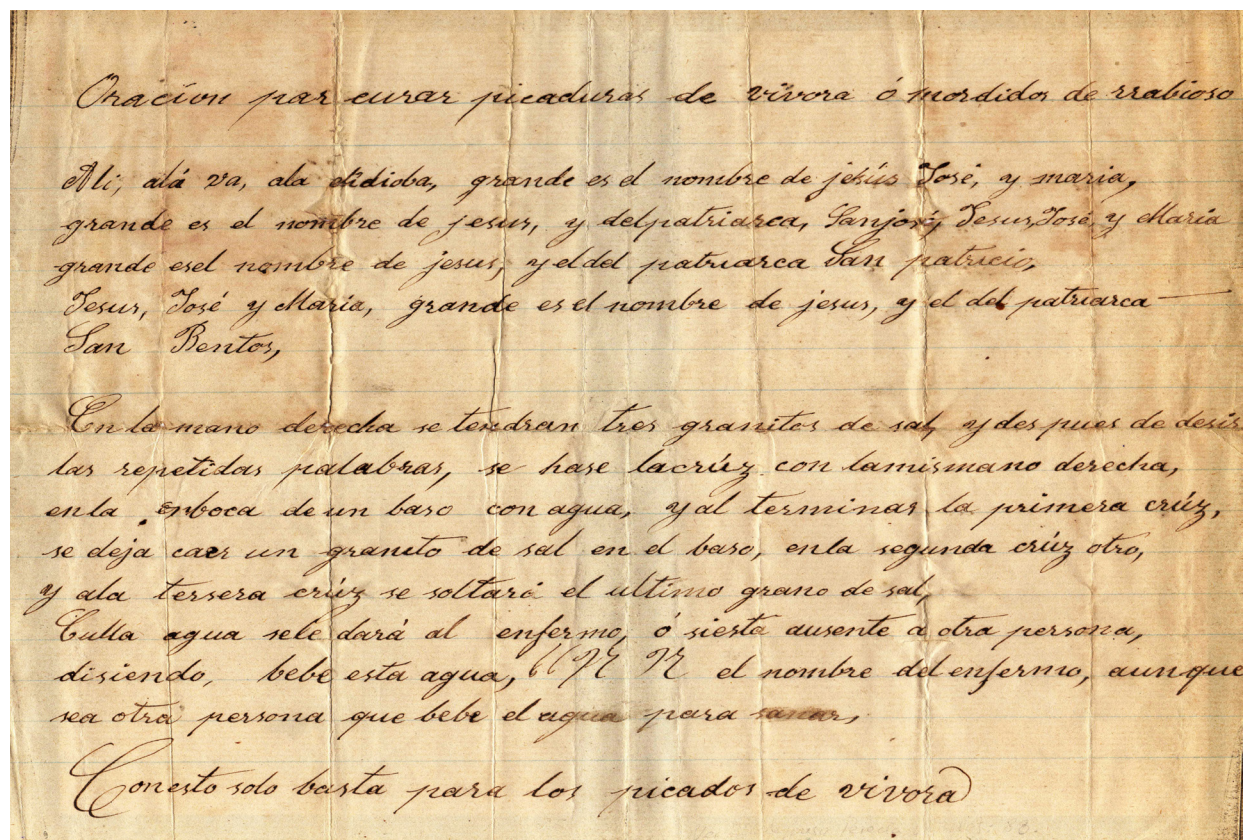 Oracíon par curar picaduras de vívora ó mordidos de rrabioso
Ali, alá va, ala didioba, grande es el nombre de jesús José, y maria,
grande es el nombre de jesus, y delpatriarca, Sanjosé, Jesus, José, y Maria
grande esel nombre de jesus, yeldel patriarca San patricio,
Jesus, José y Maria, grande es el nombre de jesus, y el del patriarca —
San Bentos,
En la mano derecha se tendran tres granitos de sal, y des pues de desir
las repetidas palabras, se hase lacrúz con lamismano derecha,
enla enboca deun baso con agua, yal terminar la primera crúz,
se deja caer un granito de sal en el baso, enla segunda crúz otro,
y ala tersera crúz se soltará el ultimo grano de sal,
Culla agua sele dará al enfermo, ó siesta ausente a otra persona,
disiendo, bebe esta agua, N N el nombre del enfermo, aunque
sea otra persona que bebe el agua para sanar,
Conesto solo basta para los picados de vivora)